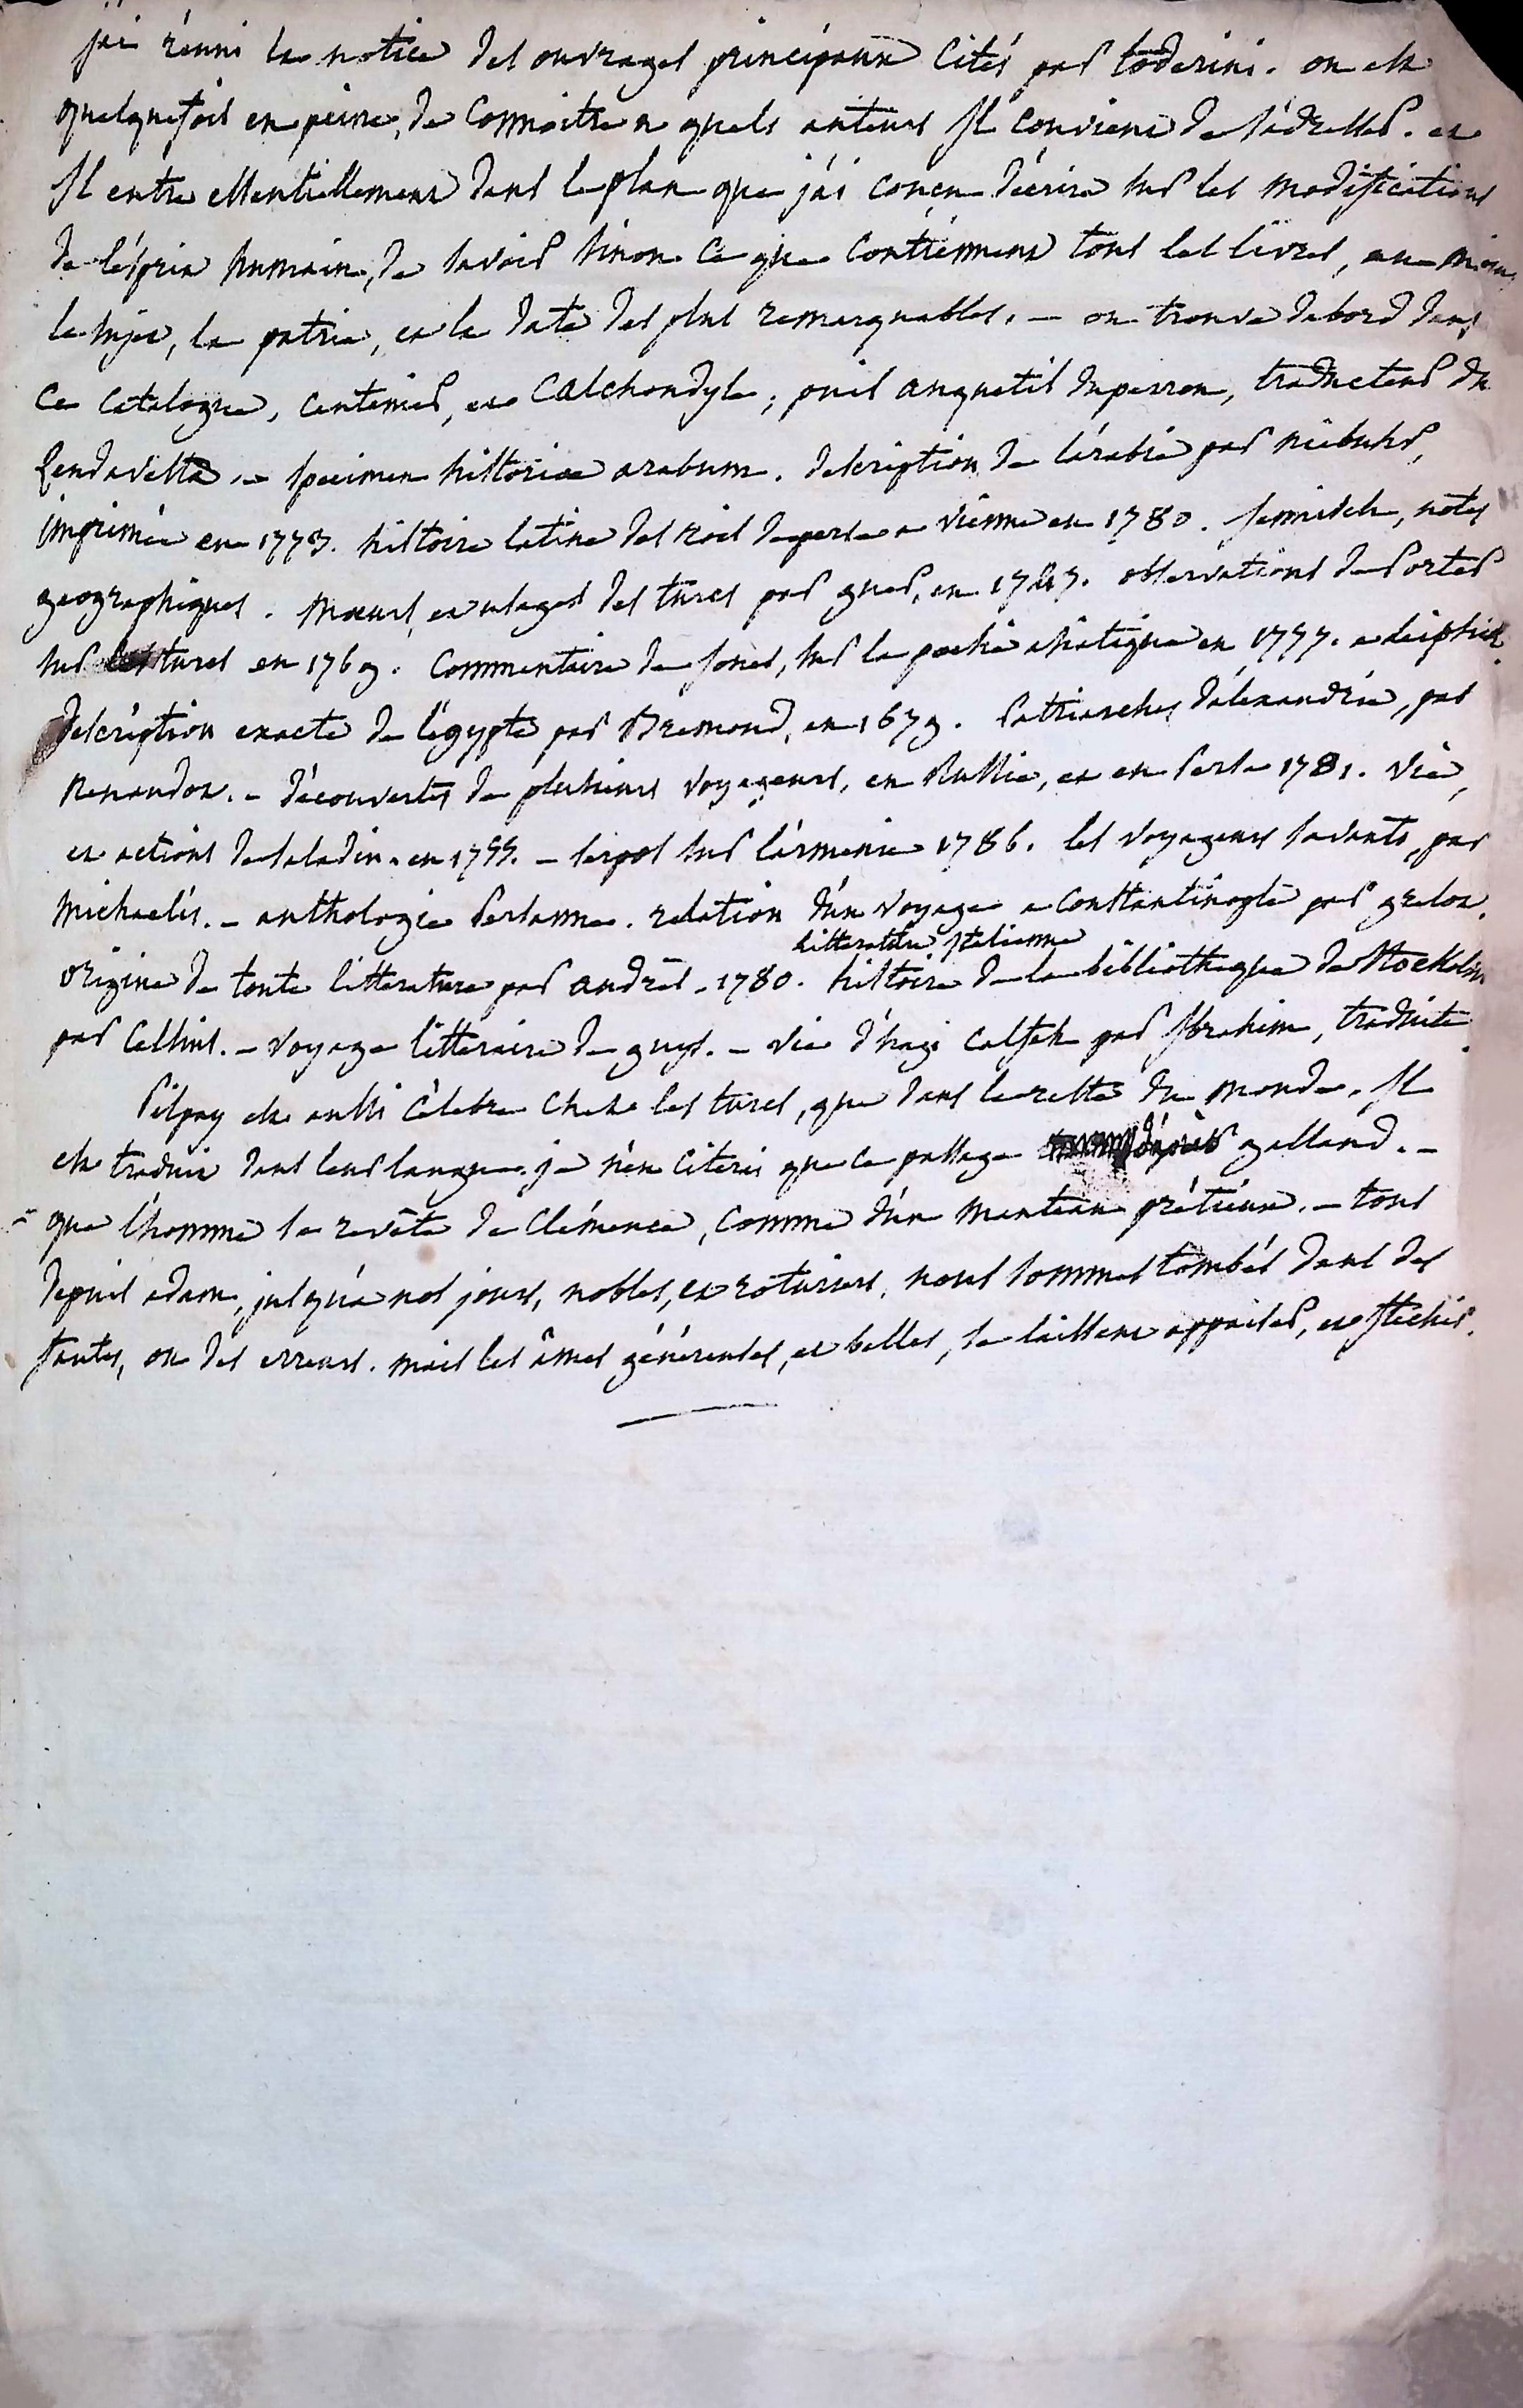 j'ai réuni la notice des ouvrages principaux cités par toderini. on est
quelquefois en peine, de connoitre a quels auteurs il convient de s'adresser. et
il entre essentiellement dans le plan que j'ai conçu d'écrire sur les modifications
de l'ésprit humain, de savoir sinon ce que contiennent tous les livres, au moins
le sujet, la patrie, et la date des plus remarquables. — on trouve dabord dans
ce catalogue, cantemir, et Calchondyle; puis anquetil duperron, traducteur du
Zendavesta. — specimen historiæ arabum. description de l'arabie par niebuhr,
imprimée en 1773. histoire latine des rois de perse a vienne en 1780. notes
geographiques. Mœurs, et usages des turcs par guer, en 1747. observations de Porter
sur les turcs en 1769. Commentaire de jones, sur la poesie asiatique en 1777. a leipsick.
description exacte de l'égypte par Bremond, en 1679. Patriarches d'alexandrie, par
Renaudot. — découvertes de plusieurs voyageurs, en Russie, et en Perse 1781. vie,
et actions de saladin. en 1755. — serpos sur l'armenie 1786. les voyageurs savants, par
Michaelis. — anthologie Persanne. relation d'un voyage a constantinople par grelot.
litterature italienne
origine de toute litterature par andrès. 1780. histoire de la bibliotheque de Stockolm
par Celsius. — voyage litteraire de guys. — vie d'hagi calfah par Ibrahim, traduite.
Pilpay est aussi célebre chez les turcs, que dans le reste du monde. il
est traduit dans leur langue. je n'en citerai que ce passage d'après galland. —
que l'homme se revête de clémence, comme d'un manteau prétieux. — tous
depuis adam, jusqu'a nos jours, nobles, et roturiers, nous sommes tombés dans des
fautes, ou des erreurs. mais les âmes généreuses, et belles, se laissent appaiser, et fléchir.